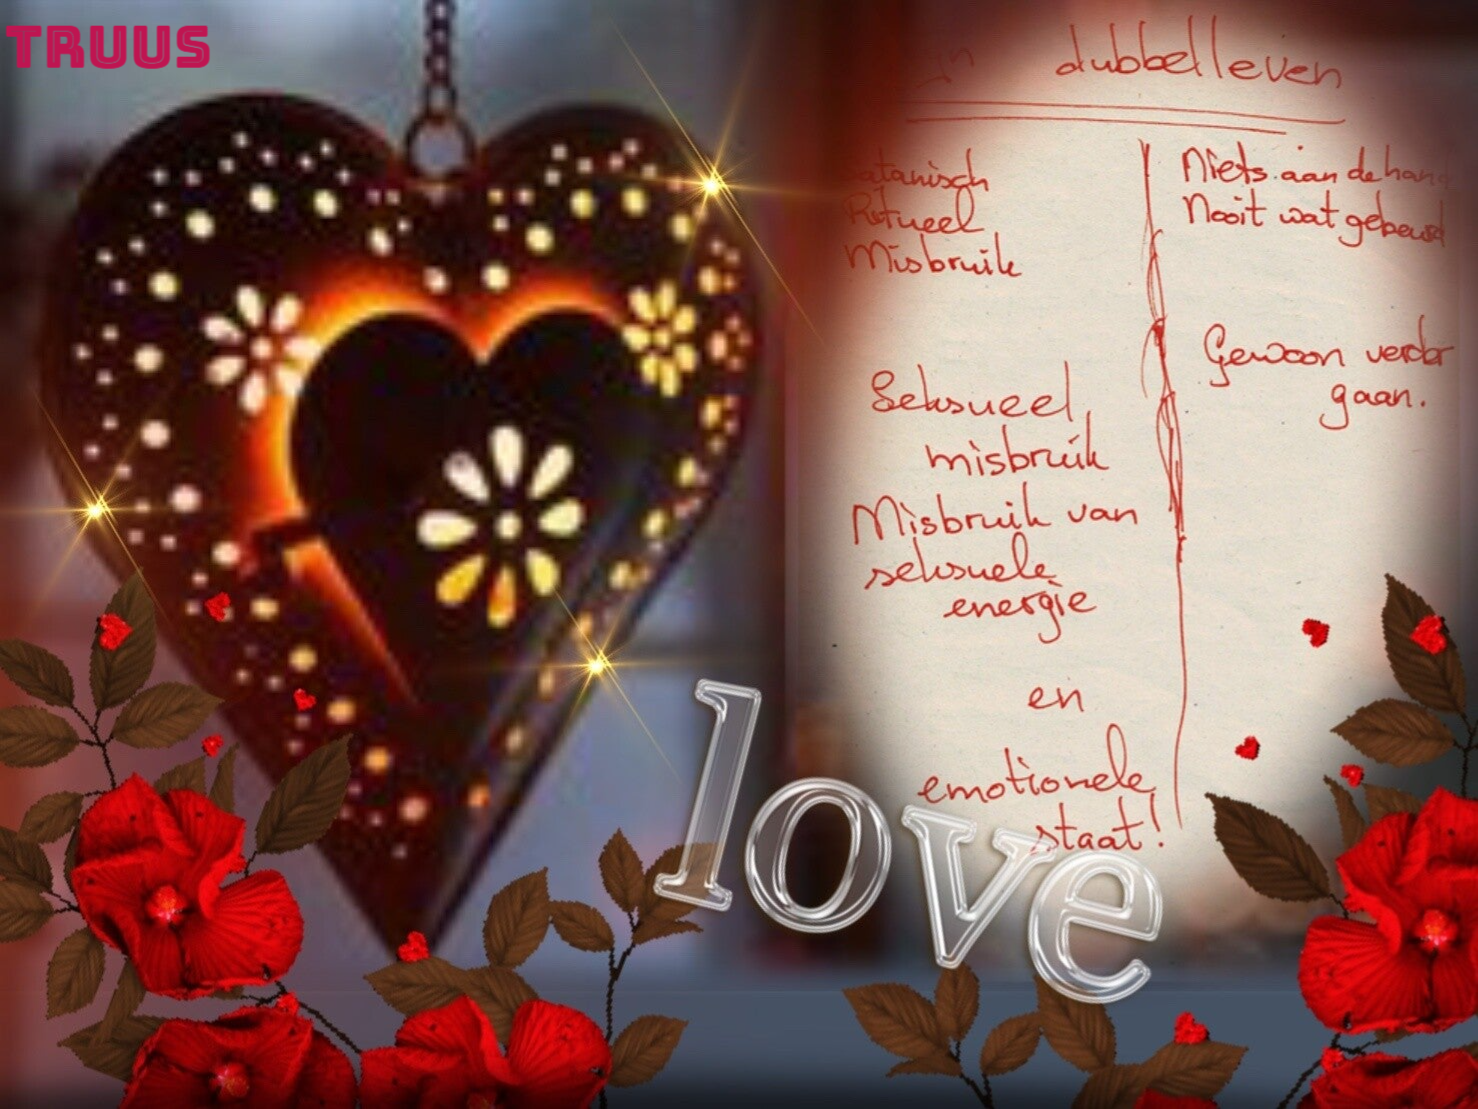 TRUUS
dubbelleven
Satanisch
Ritueel
Misbruik
Seksueel
misbruik
Misbruik van
seksuele
energie
en
emotionele
staat!
Niets aan de hand
Nooit wat gebeurd
Gewoon verder
gaan.
love